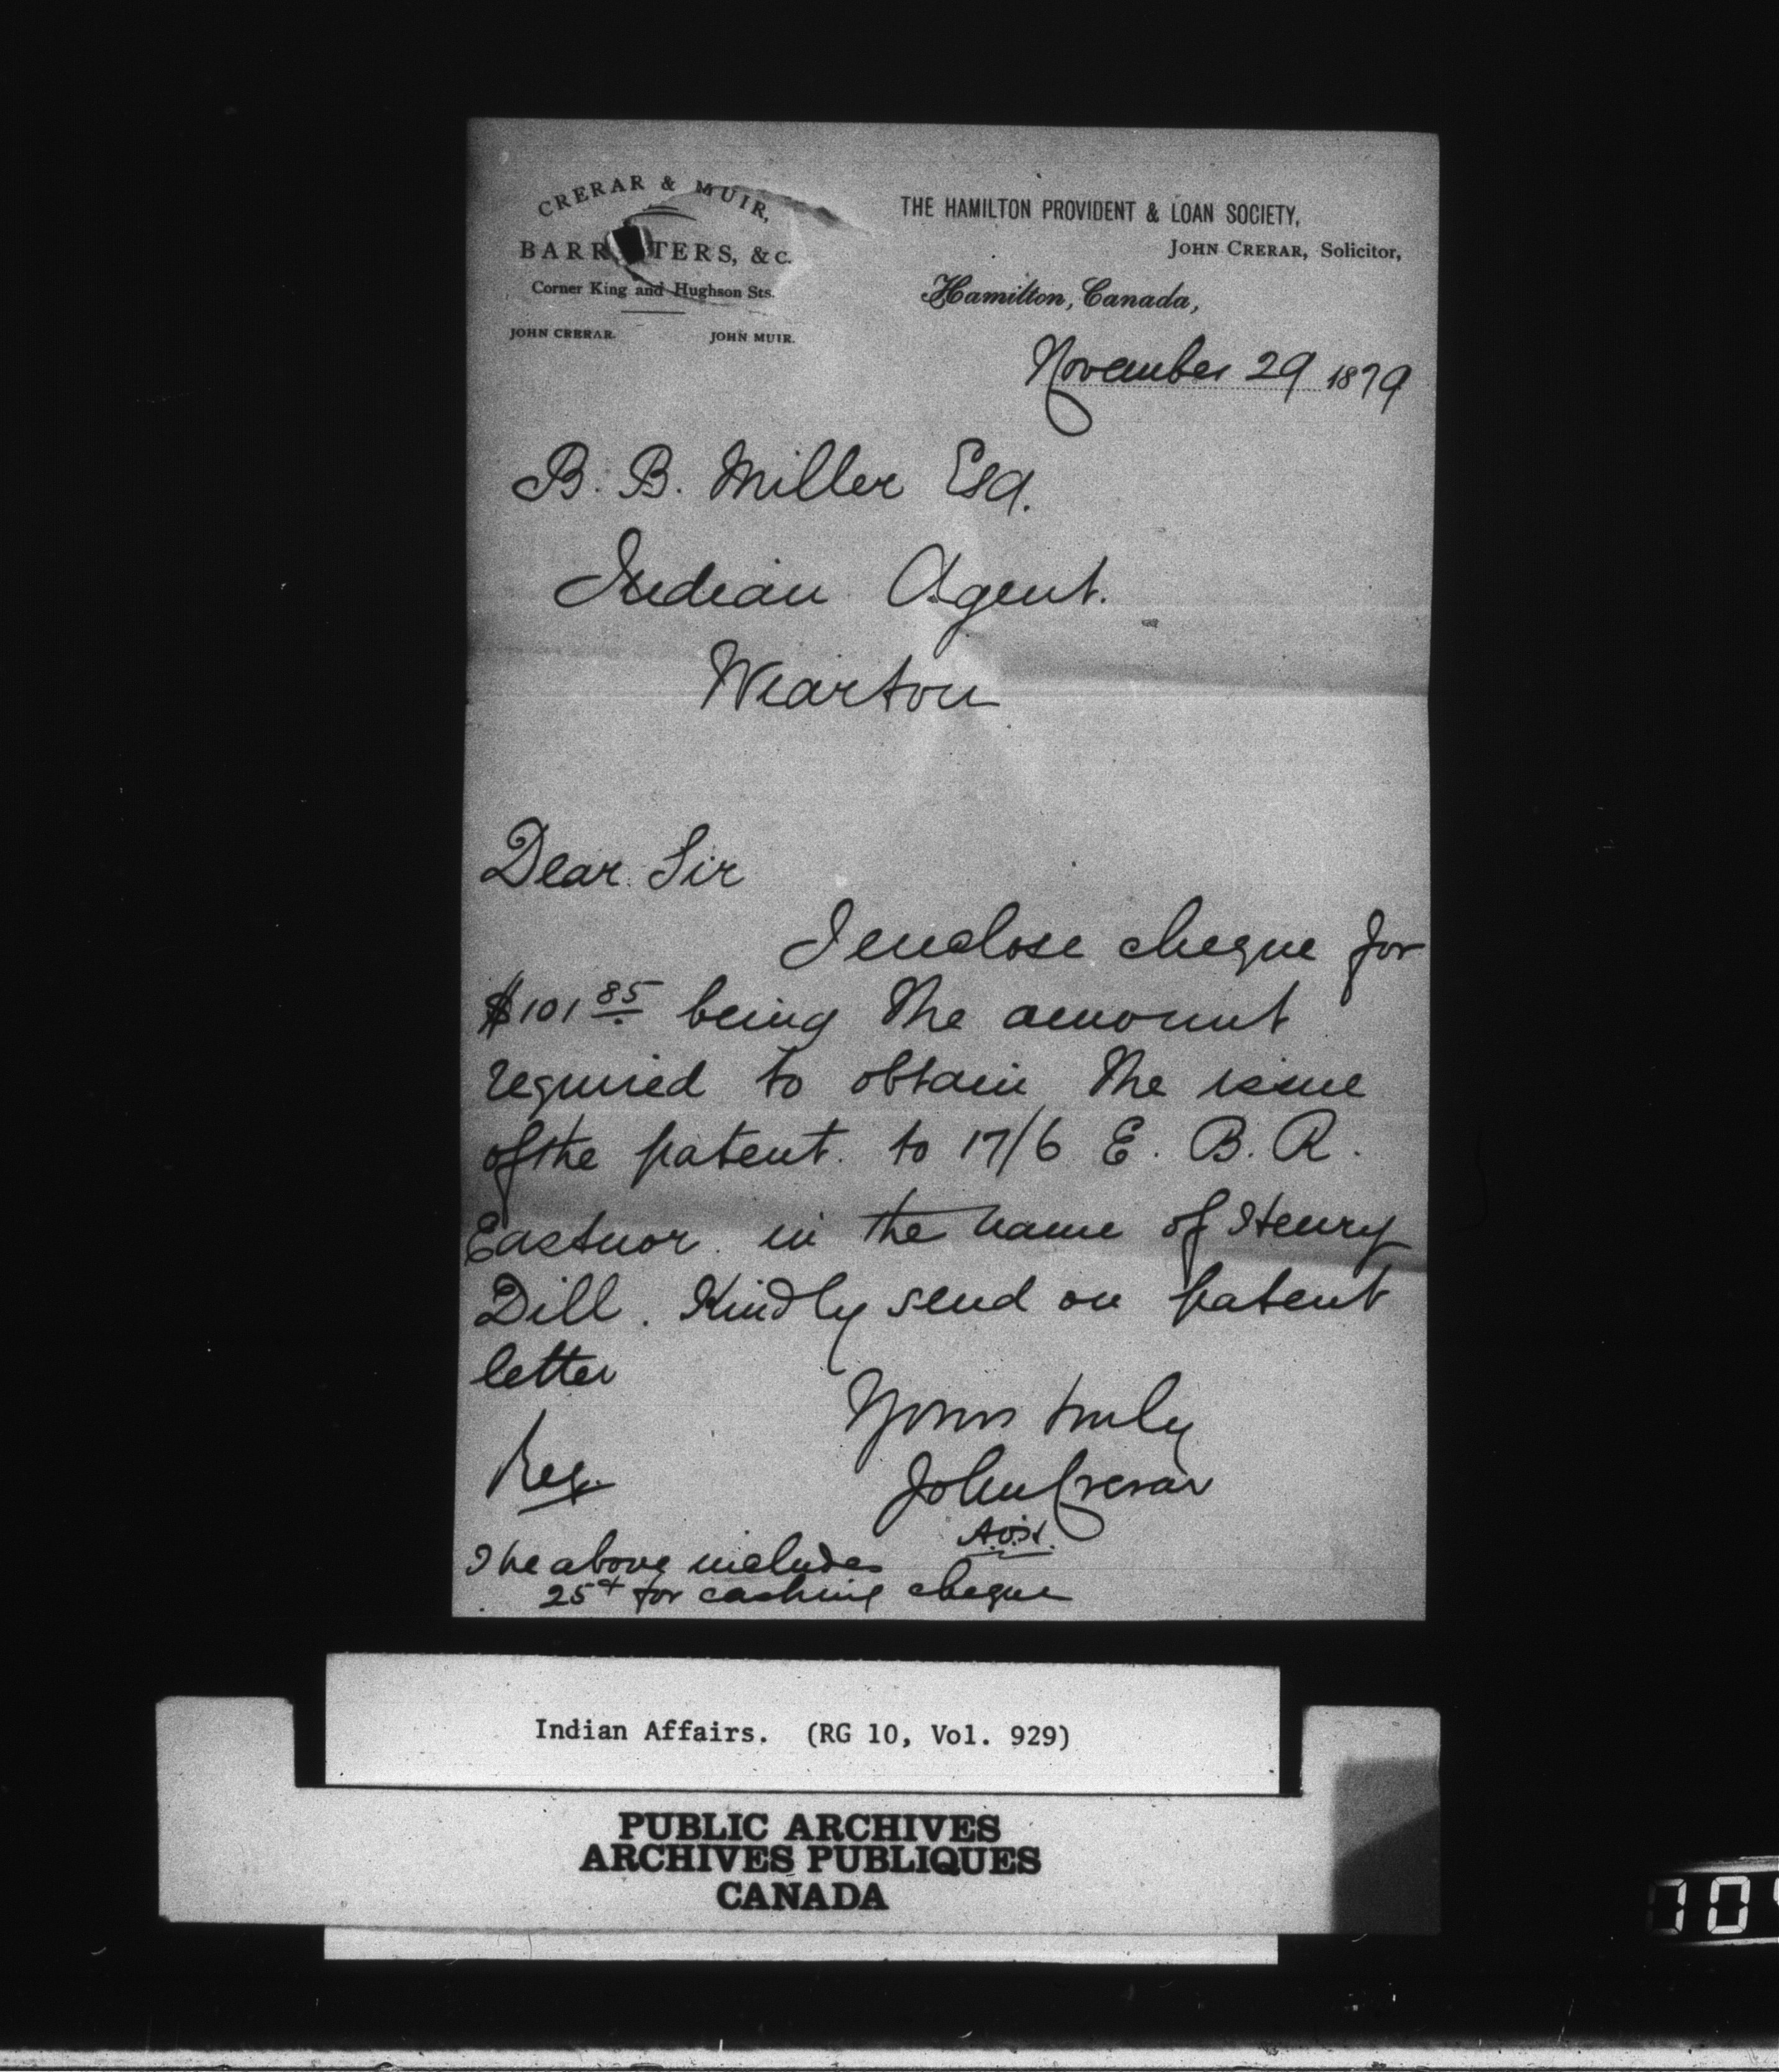 CRERAR & MUIR,
BARR TERS, &c.
Corner King and Hughson Sts.
JOHN CRERAR. JOHN MUIR.
THE HAMILTON PROVIDENT & LOAN SOCIETY,
JOHN CRERAR, Solicitor,
Hamilton, Canada,
November 29 1879
B. B. Miller Esq.
Indian Agent.
Wiarton
Dear Sir
I enclose cheque for
$101 85 being the amount
required to obtain the issue
of the patent to 17/6 E. B. R.
Eastnor in the name of Henry
Dill. Kindly send on patent
letter
Yours truly
John Crerar
Reg.
The above includes
25 for cashing cheque
Indian Affairs. (RG 10, Vol. 929)
PUBLIC ARCHIVES
ARCHIVES PUBLIQUES
CANADA